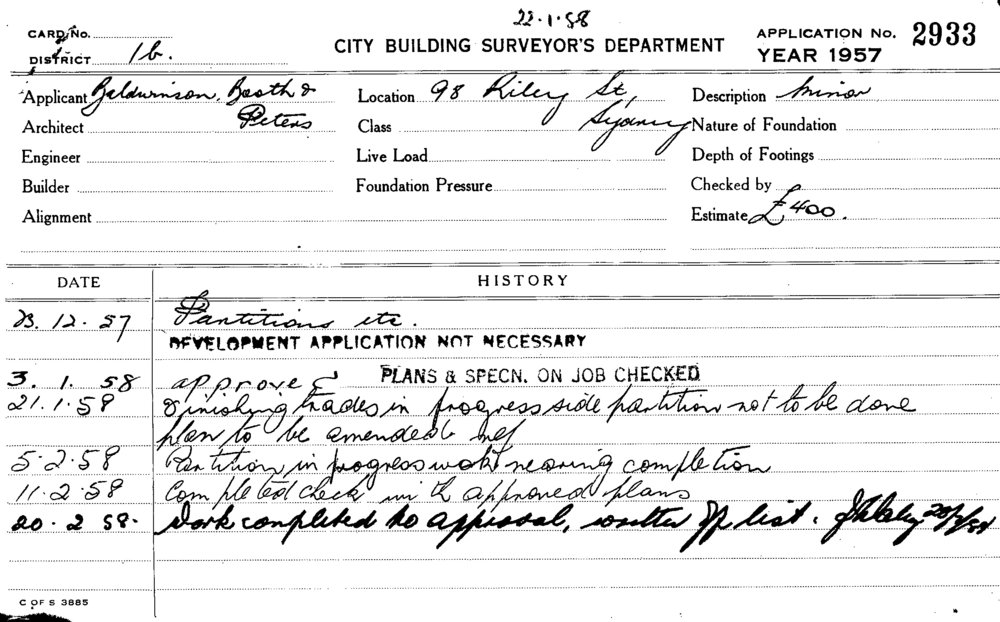 22.1.58
CARD No.
CITY BUILDING SURVEYOR'S DEPARTMENT
APPLICATION No. 2933
DISTRICT 1b.
YEAR 1957
Applicant Baldwinson, Booth &
Peters
Location 98 Riley St,
Sydney
Description Minor
Architect
Class
Nature of Foundation
Engineer
Live Load
Depth of Footings
Builder
Foundation Pressure
Checked by
Alignment
Estimate £400.
DATE
HISTORY
23.12.57 Partitions etc.
DEVELOPMENT APPLICATION NOT NECESSARY
3.1.58 approved PLANS & SPECN. ON JOB CHECKED
21.1.58 Finishing trades in progress side partition not to be done
plan to be amended
5.2.58 Partition in progress work nearing completion
11.2.58 Completed check with approved plans
20.2.58. Work completed to approval, list. 20/2/58
C OF S 3885